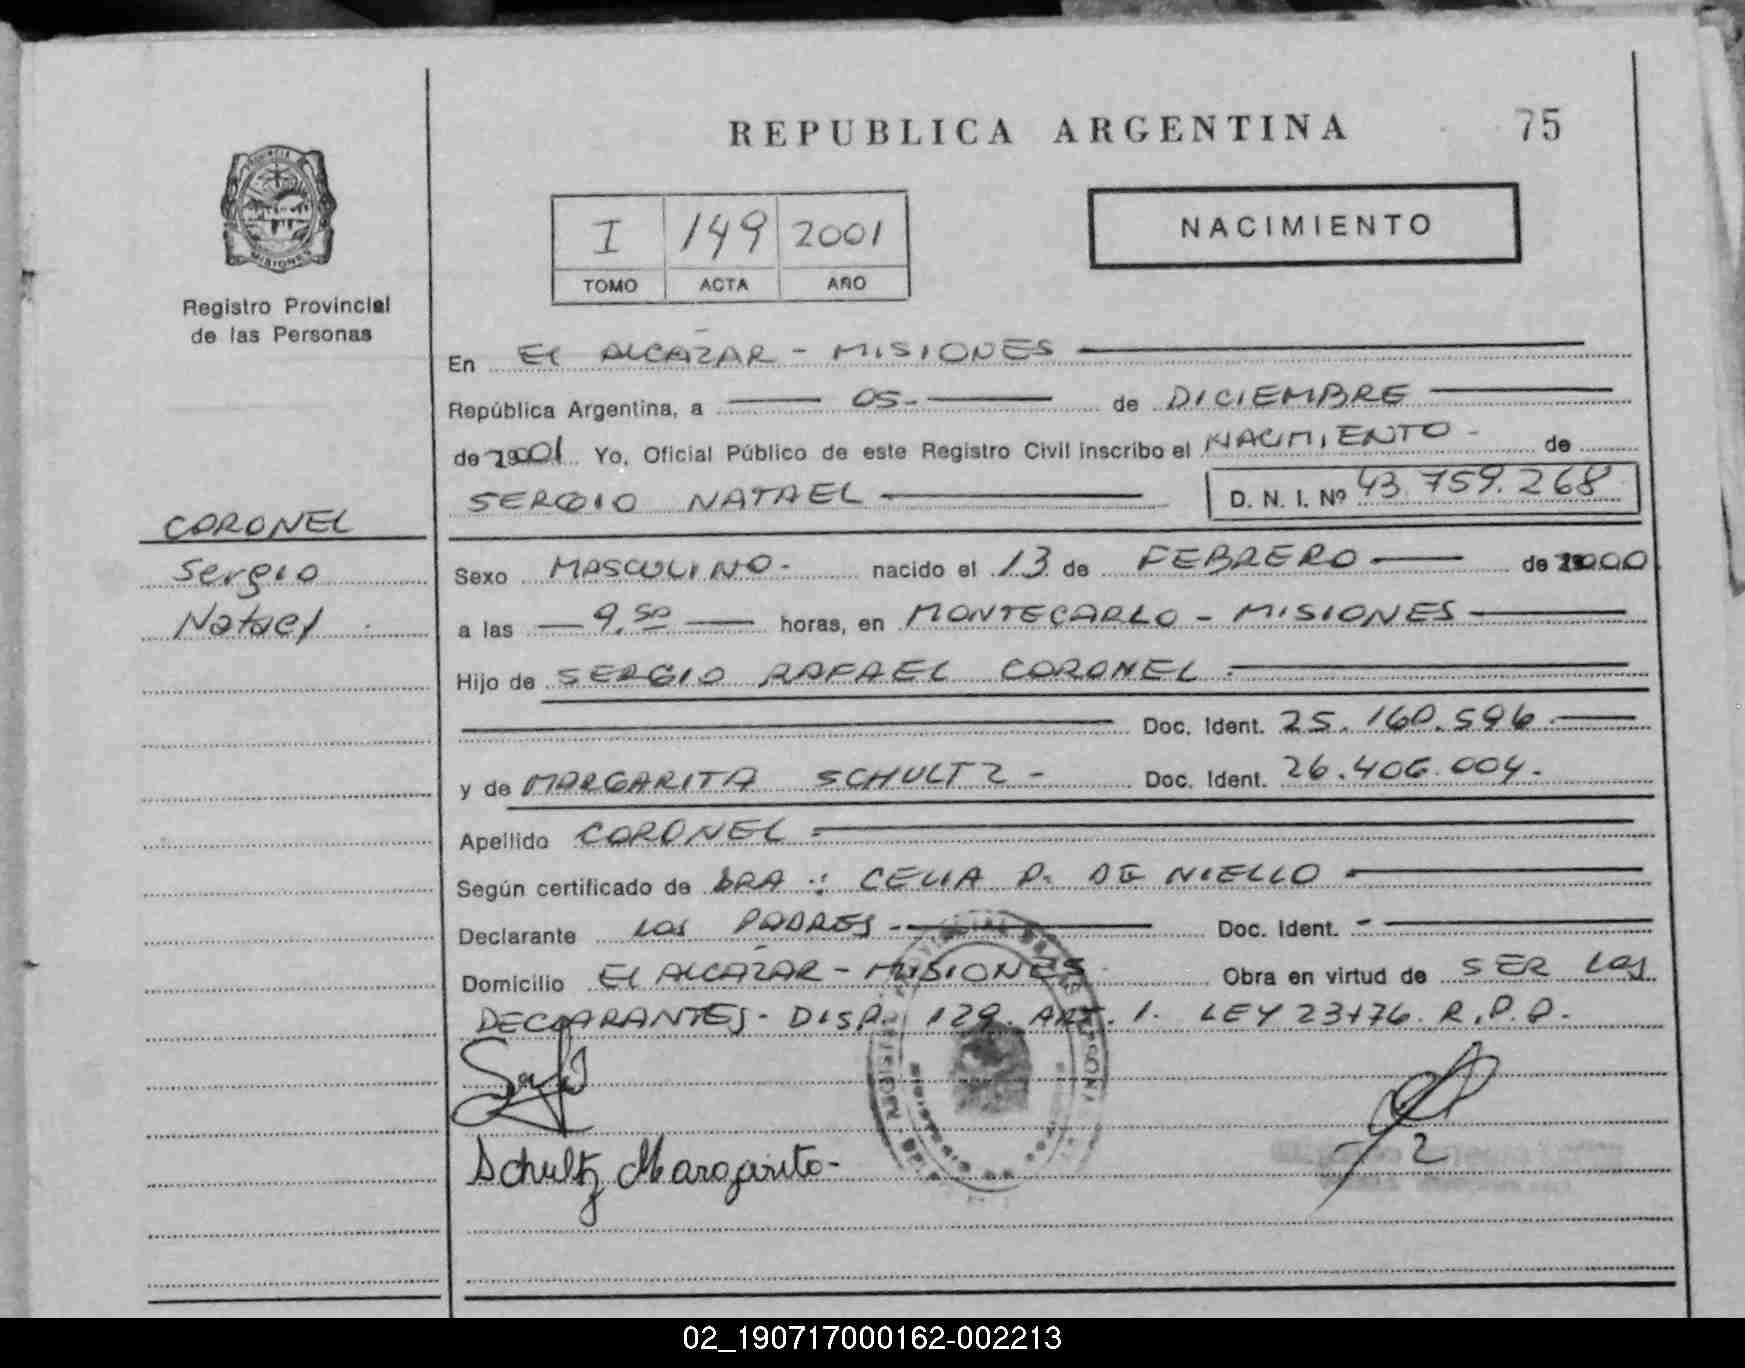 REPUBLICA ARGENTINA 75
PROVINCIA DE
MISIONES
Registro Provincial
de las Personas
I 149 2001
TOMO ACTA AÑO
NACIMIENTO
En El ALCAZAR - MISIONES
República Argentina, a 05.- de DICIEMBRE
de 2001 Yo, Oficial Público de este Registro Civil inscribo el NACIMIENTO - de
SERGIO NATAEL D. N. I. Nº 43.759.268
CORONEL
Sergio
Natael
Sexo MASCULINO.- nacido el 13 de FEBRERO de 2000
a las 9,50 horas, en MONTECARLO - MISIONES
Hijo de SERGIO RAFAEL CORONEL
Doc. Ident. 25.160.596.
y de MARGARITA SCHULTZ - Doc. Ident. 26.406.004.
Apellido CORONEL
Según certificado de DRA : CELIA P. DE NIELLO
Declarante LOS PADRES - Doc. Ident. -
Domicilio El ALCAZAR - MISIONES Obra en virtud de SER LOS
DECLARANTES - DISP. 129. ART. 1. LEY 23776. R.P.P.
Schultz Margarita-
02_190717000162-002213